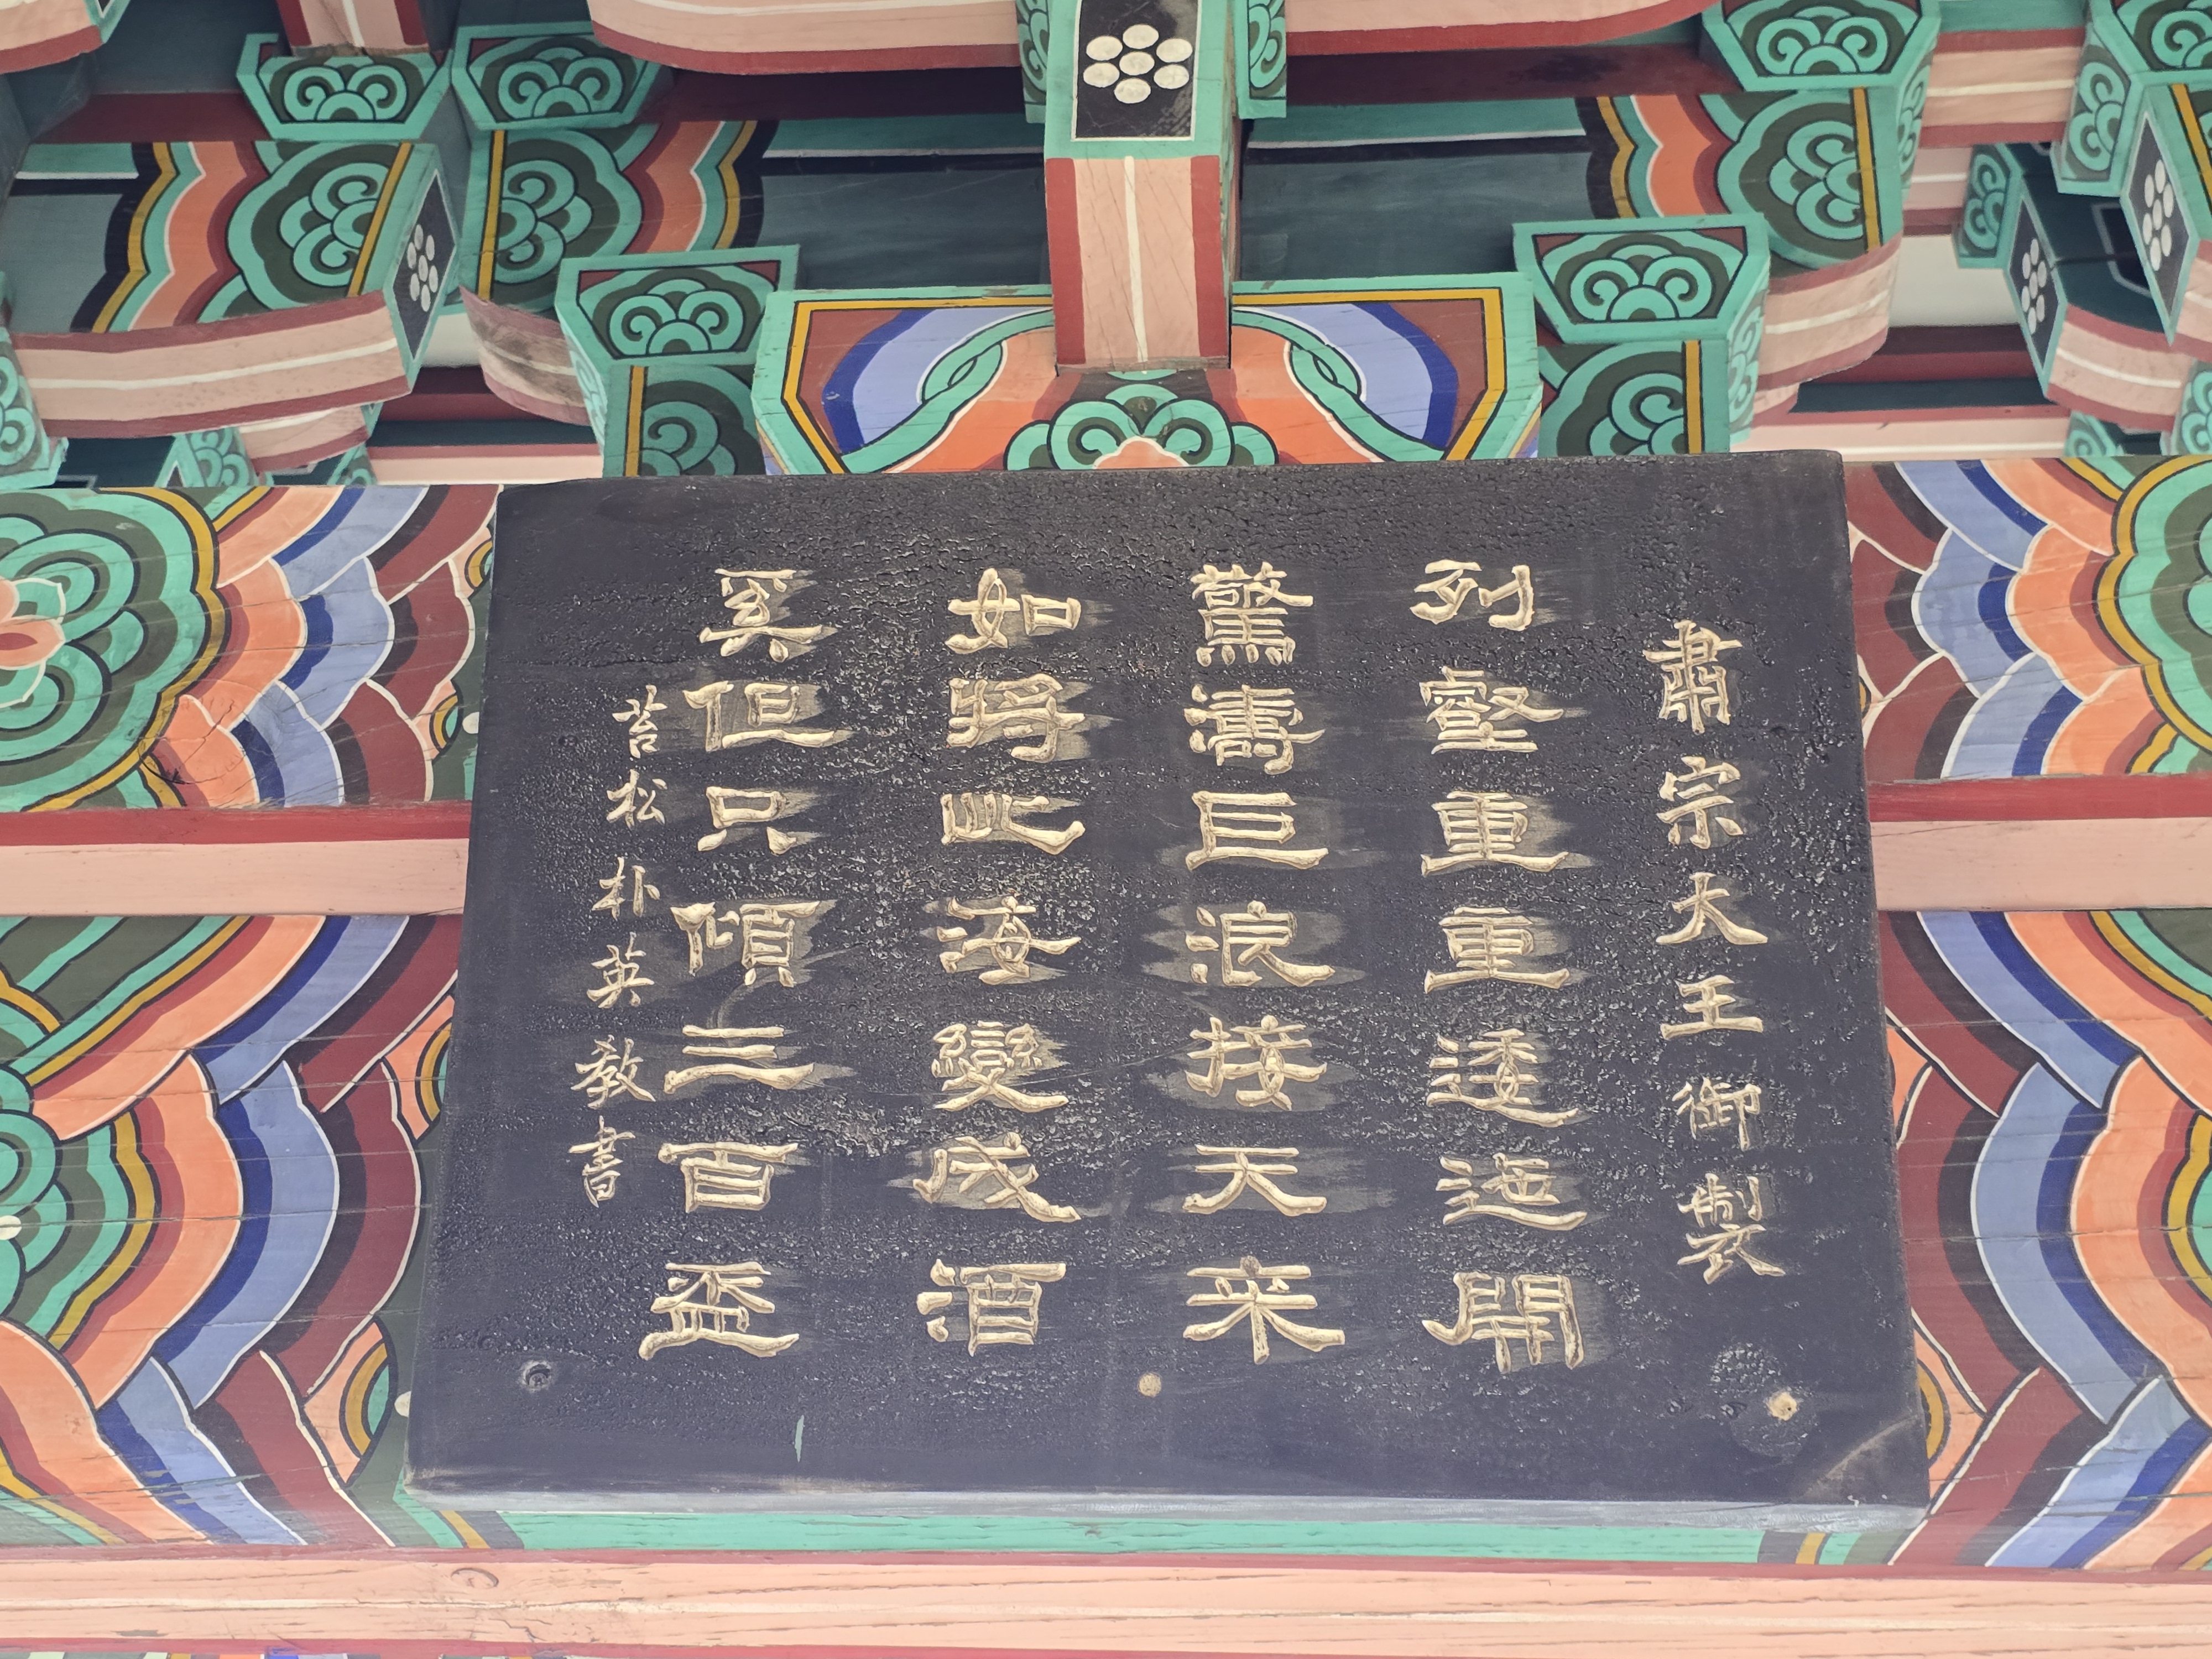 肅宗大王御製
列壑重重逶迤開
驚濤巨浪接天来
如將此海變成酒
奚但只傾三百盃
苔松朴英教書